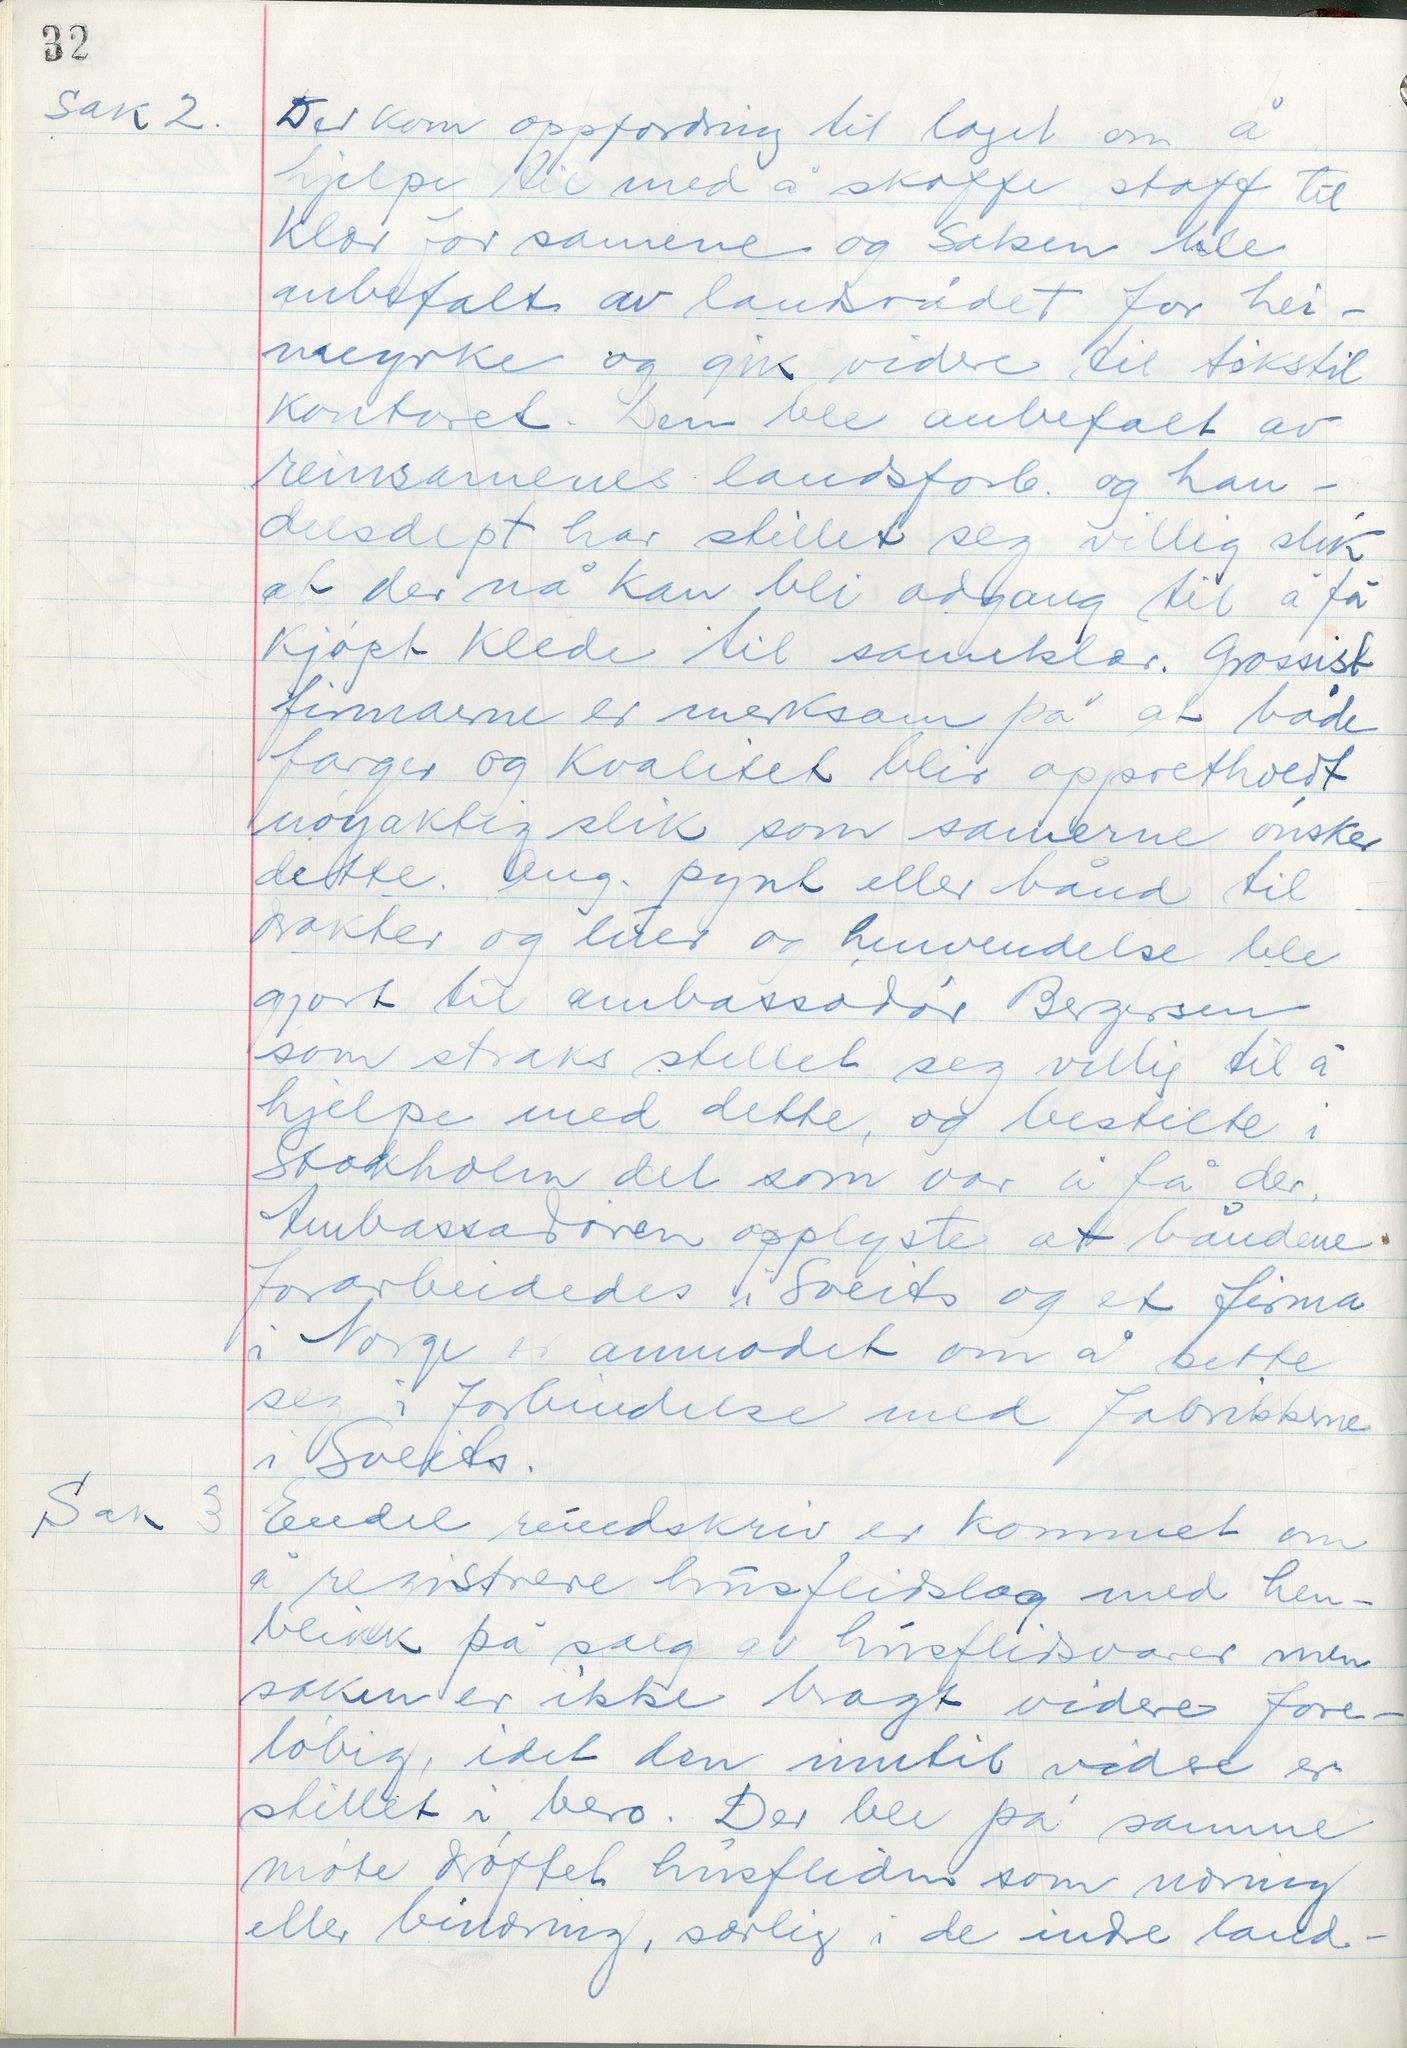 32
Sak 2. Det kom oppfordring til laget om å
hjelpe til med å skaffe stoff til
klær for samene og saken ble
anbefalt av landsrådet for hei-
meyrke og gik videre til tekstil
kontoret. Den ble anbefalt av
reinsamenes landsforb. og han-
delsdept har stillet seg villig slik
at der nå kan bli adgang til å få
kjøpt klede til sameklær. Grossist
firmaerne er merksam på at både
farger og kvalitet blir opprethvedt
nøyaktig slik som samerne ønsker
dette. Ang. pynt eller bånd til
drakter og luer og henvendelse ble
gjort til ambassadør Bergersen
som straks stillet seg villig til å
hjelpe med dette, og bestilte i
Stokholm det som var å få der.
Ambassadøren opplyste at båndene
forarbeidedes i Sveits og et firma
i Norge er anmodet om å sette
seg i forbindelse med fabrikkerne
i Sveits.
Sak 3 Endel rundskriv er kommet om
å registrere husflidslag med hen-
blikk på salg av husflidsvarer men
saken er ikke bragt videre fore-
løbig, idet den inntil videre er
stillet i bero. Der ble på samme
møte drøftet husfliden som næring
eller binæring, særlig i de indre land-